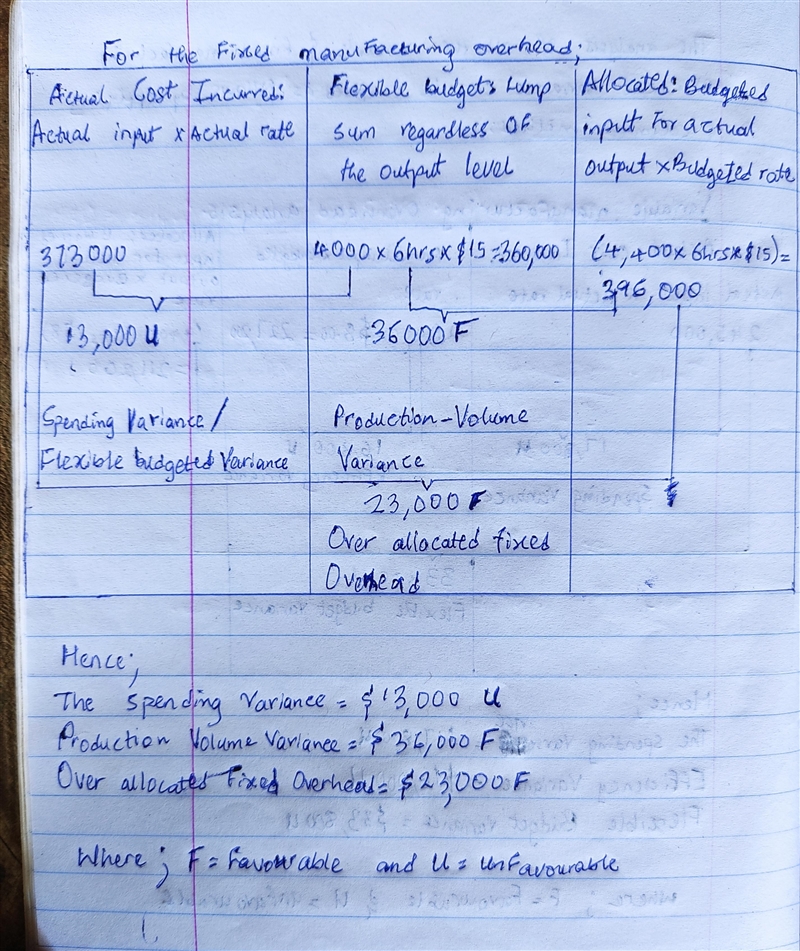 For the Fixed manufacturing overhead;
Actual Cost Incurred:
Actual input x Actual rate
Flexible budget: Lump
sum regardless of
the output level
Allocated: Budgeted
input for actual
output x Budgeted rate
373000
4000 x 6hrs x $15 = 360,000
(4,400 x 6hrs x $15) =
396,000
13,000 U
36000 F
Spending Variance /
Flexible budgeted Variance
Production - Volume
Variance
23,000 F
Over allocated fixed
Overhead
Hence;
The Spending Variance = $13,000 U
Production Volume Variance = $36,000 F
Over allocated Fixed Overhead = $23,000 F
Where; F = Favourable and U = unfavourable